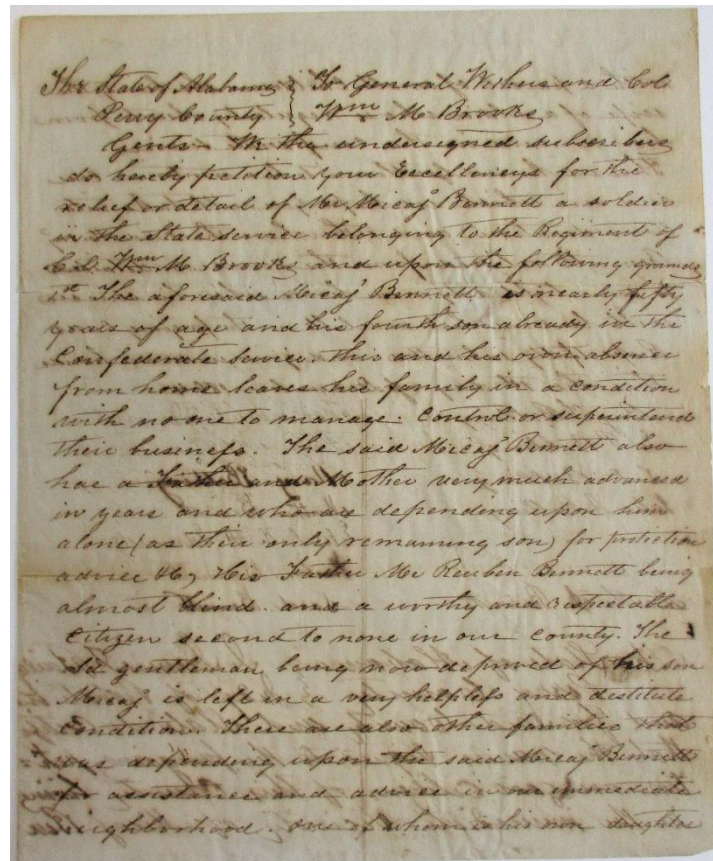 The State of Alabama } To General Withers and Col.
Perry County } Wm M Brooks
Gents. We the undersigned subscribers
do hereby petition your Excellencys for the
relief or detail of Mr. Micajs Bennett a soldier
in the State service belonging to the Regiment of
Col. Wm M. Brooks and upon the following grounds
1st The aforesaid Micajs Bennett is nearly fifty
years of age and his fourth son already in the
Confederate Service. this and his own absence
from home leaves his family in a condition
with no one to manage. control or superintend
their business. The said Micajs Bennett also
has a Father and Mother very much advanced
in years and who are depending upon him
alone (as their only remaining son) for protection
advice &c, His Father Mr Reuben Bennett being
almost blind. and a worthy and respectable
Citizen second to none in our county. The
old gentleman being now deprived of his son
Micajs is left in a very helpless and destitute
condition. There are also other families that
was depending upon the said Micajs Bennett
for assistance and advice in our immediate
neighborhood. one of whom is his own daughter